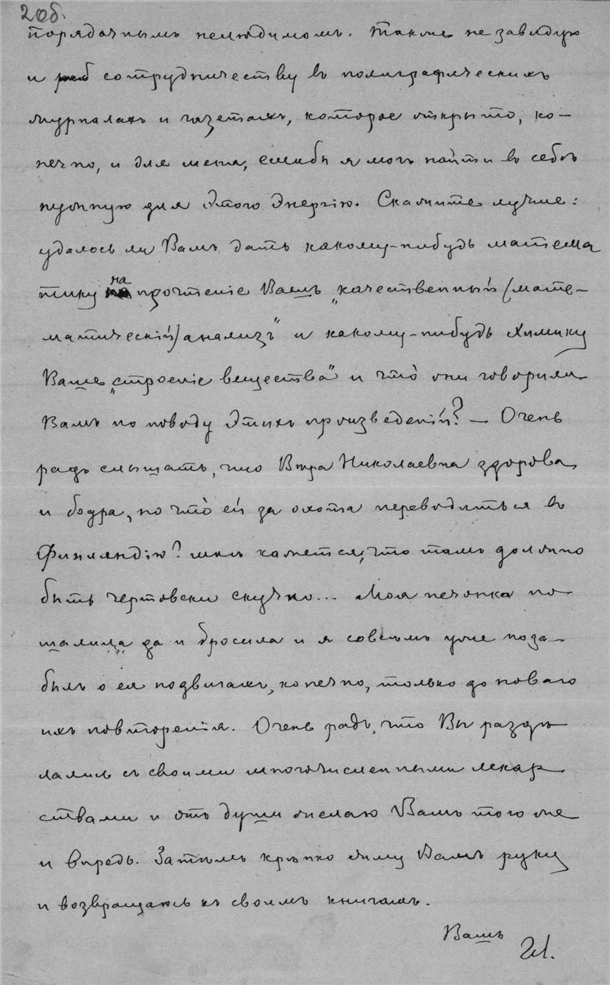 20об.
порядочнымъ нелюдимомъ. Также не завѣдую
и сотрудничеству въ полиграфическихъ
журналахъ и газетахъ, которое открыто, ко-
нечно, и для меня, еслибъ я могъ найти въ себѣ
нужную для этого энергію. Скажите лучше:
удалось ли Вамъ дать какому-нибудь матема
тику на прочтеніе Вашъ „качественный (мате-
матическій) анализъ" и какому-нибудь химику
Ваше „строеніе вещества" и что̀ они говорили
Вамъ по поводу этихъ произведеній? — Очень
радъ слышать, что Вѣра Николаевна здорова
и бодра, но что̀ ей за охота переводиться въ
Финляндію? мнѣ кажется, что тамъ должно
быть чертовски скучно... Моя печонка по
шалила да и бросила и я совсѣмъ уже поза-
былъ о ея подвигахъ, конечно, только до новаго
ихъ повторенія. Очень радъ, что Вы раздѣ
лались съ своими многочисленными лекар
ствами и отъ души желаю Вамъ того же
и впредь. Затѣмъ крѣпко жму Вамъ руку
и возвращаюсь къ своимъ книгамъ.
Вашъ